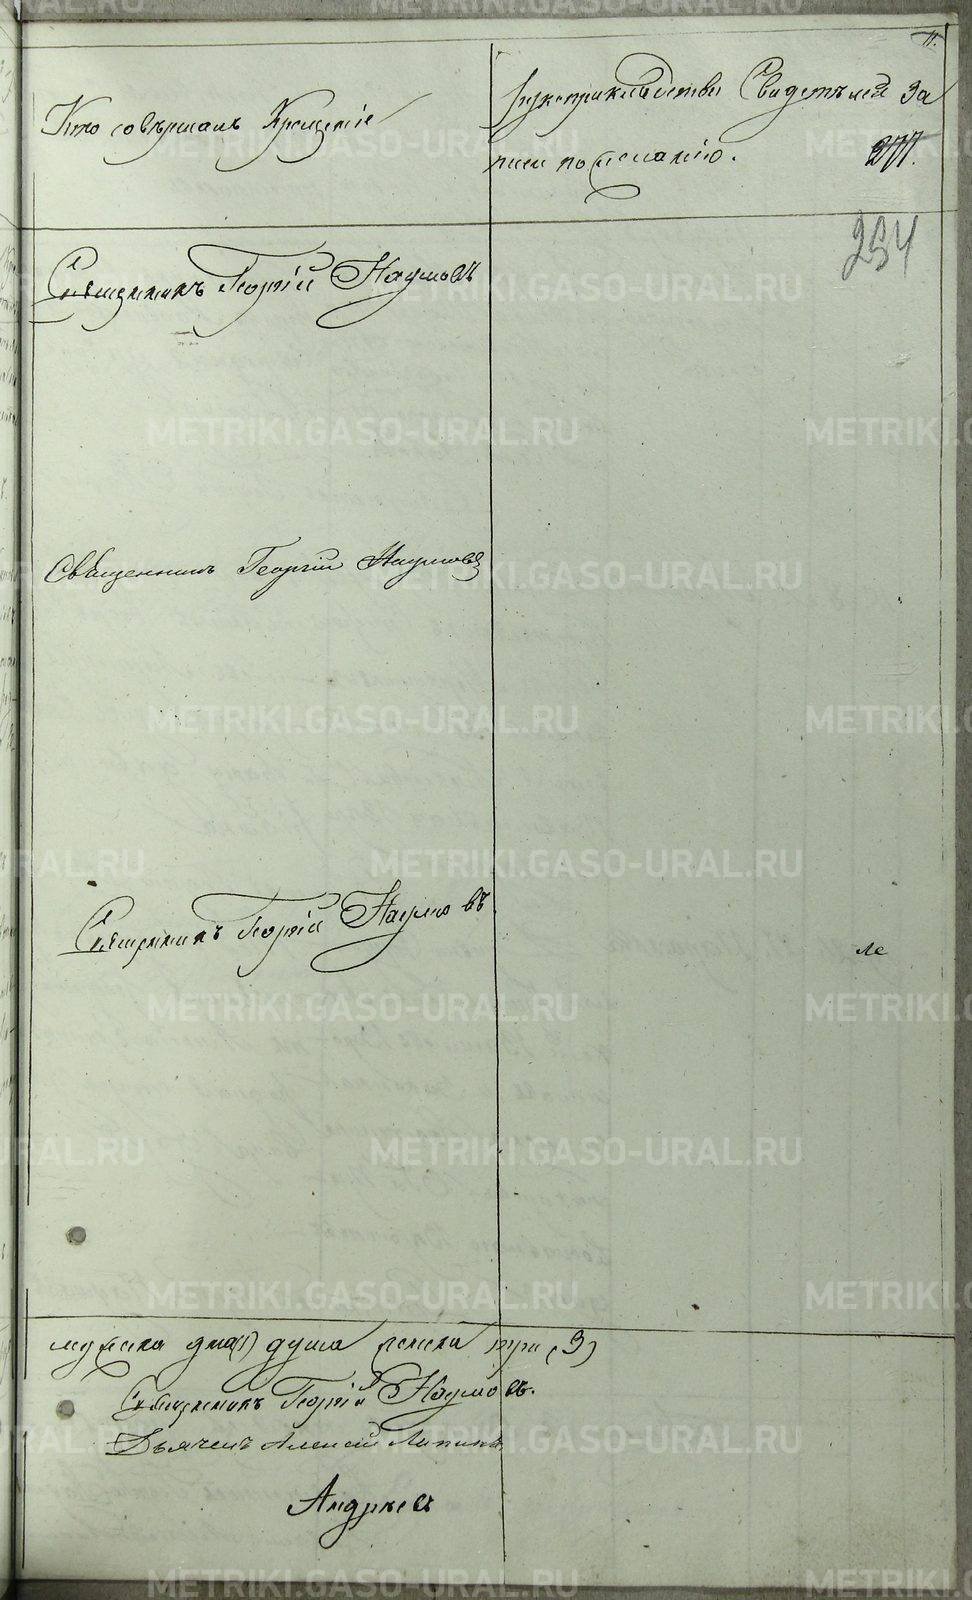 11.
Кто совършалъ Крещеніе
Рукоприкладство Свидетелей За
писи по желанію.
277.
254
Священникъ Георгій Наумовъ
Священникъ Георгій Наумовъ
Священникъ Георгій Наумовъ
ле
мужеска дна(1) душа женска три (3)
Священникъ Георгій Наумовъ.
Дьячекъ Алексей Липинъ
Андреевъ
METRIKI.GASO-URAL.RU